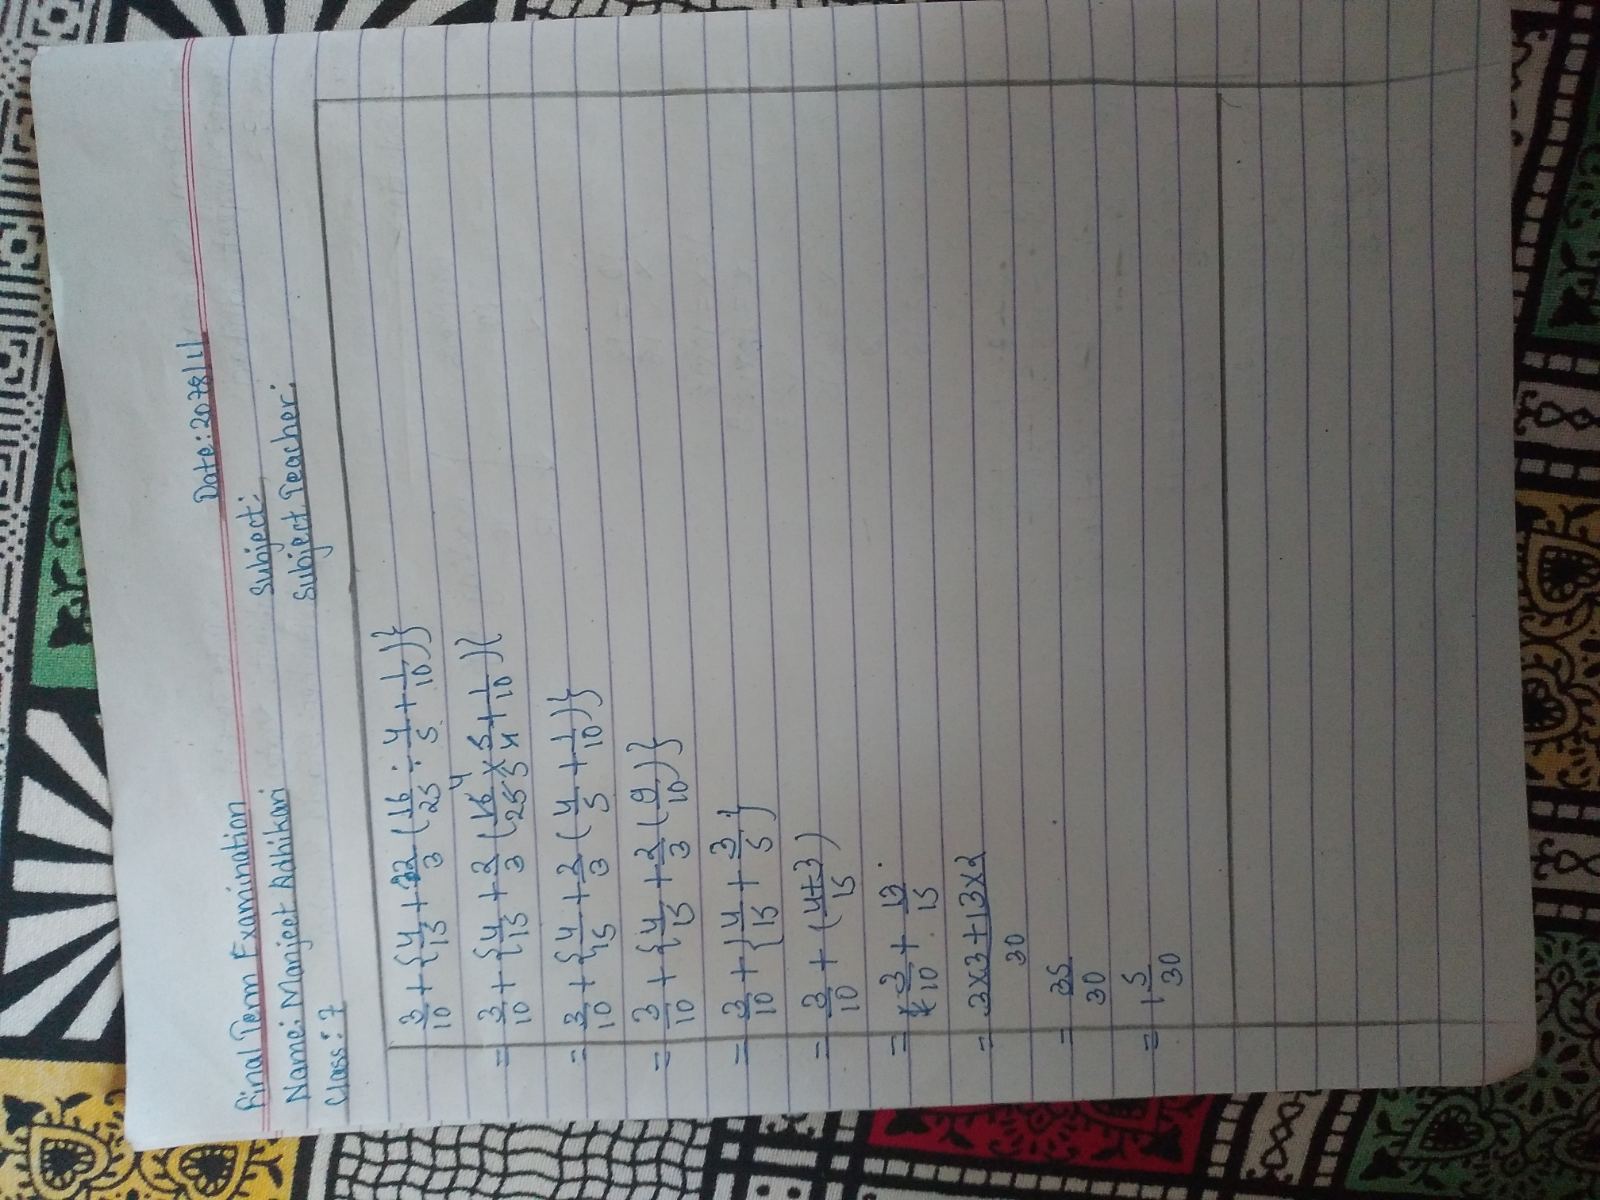 Date: 2078/1/
Final Term Examination
Name: Manjeet Adhikari Subject:
Class: 7 Subject Teacher:
3/10 + {4/15 + 2/3 (16/25 ÷ 4/5 + 1/10)}
= 3/10 + {4/15 + 2/3 (16/25 × 5/4 + 1/10)}
= 3/10 + {4/15 + 2/3 (4/5 + 1/10)}
= 3/10 + {4/15 + 2/3 (9/10)}
= 3/10 + {4/15 + 3/5}
= 3/10 + (4+3/15)
= 3/10 + 13/15
= 3×3+13×2/30
= 35/30
= 1 5/30